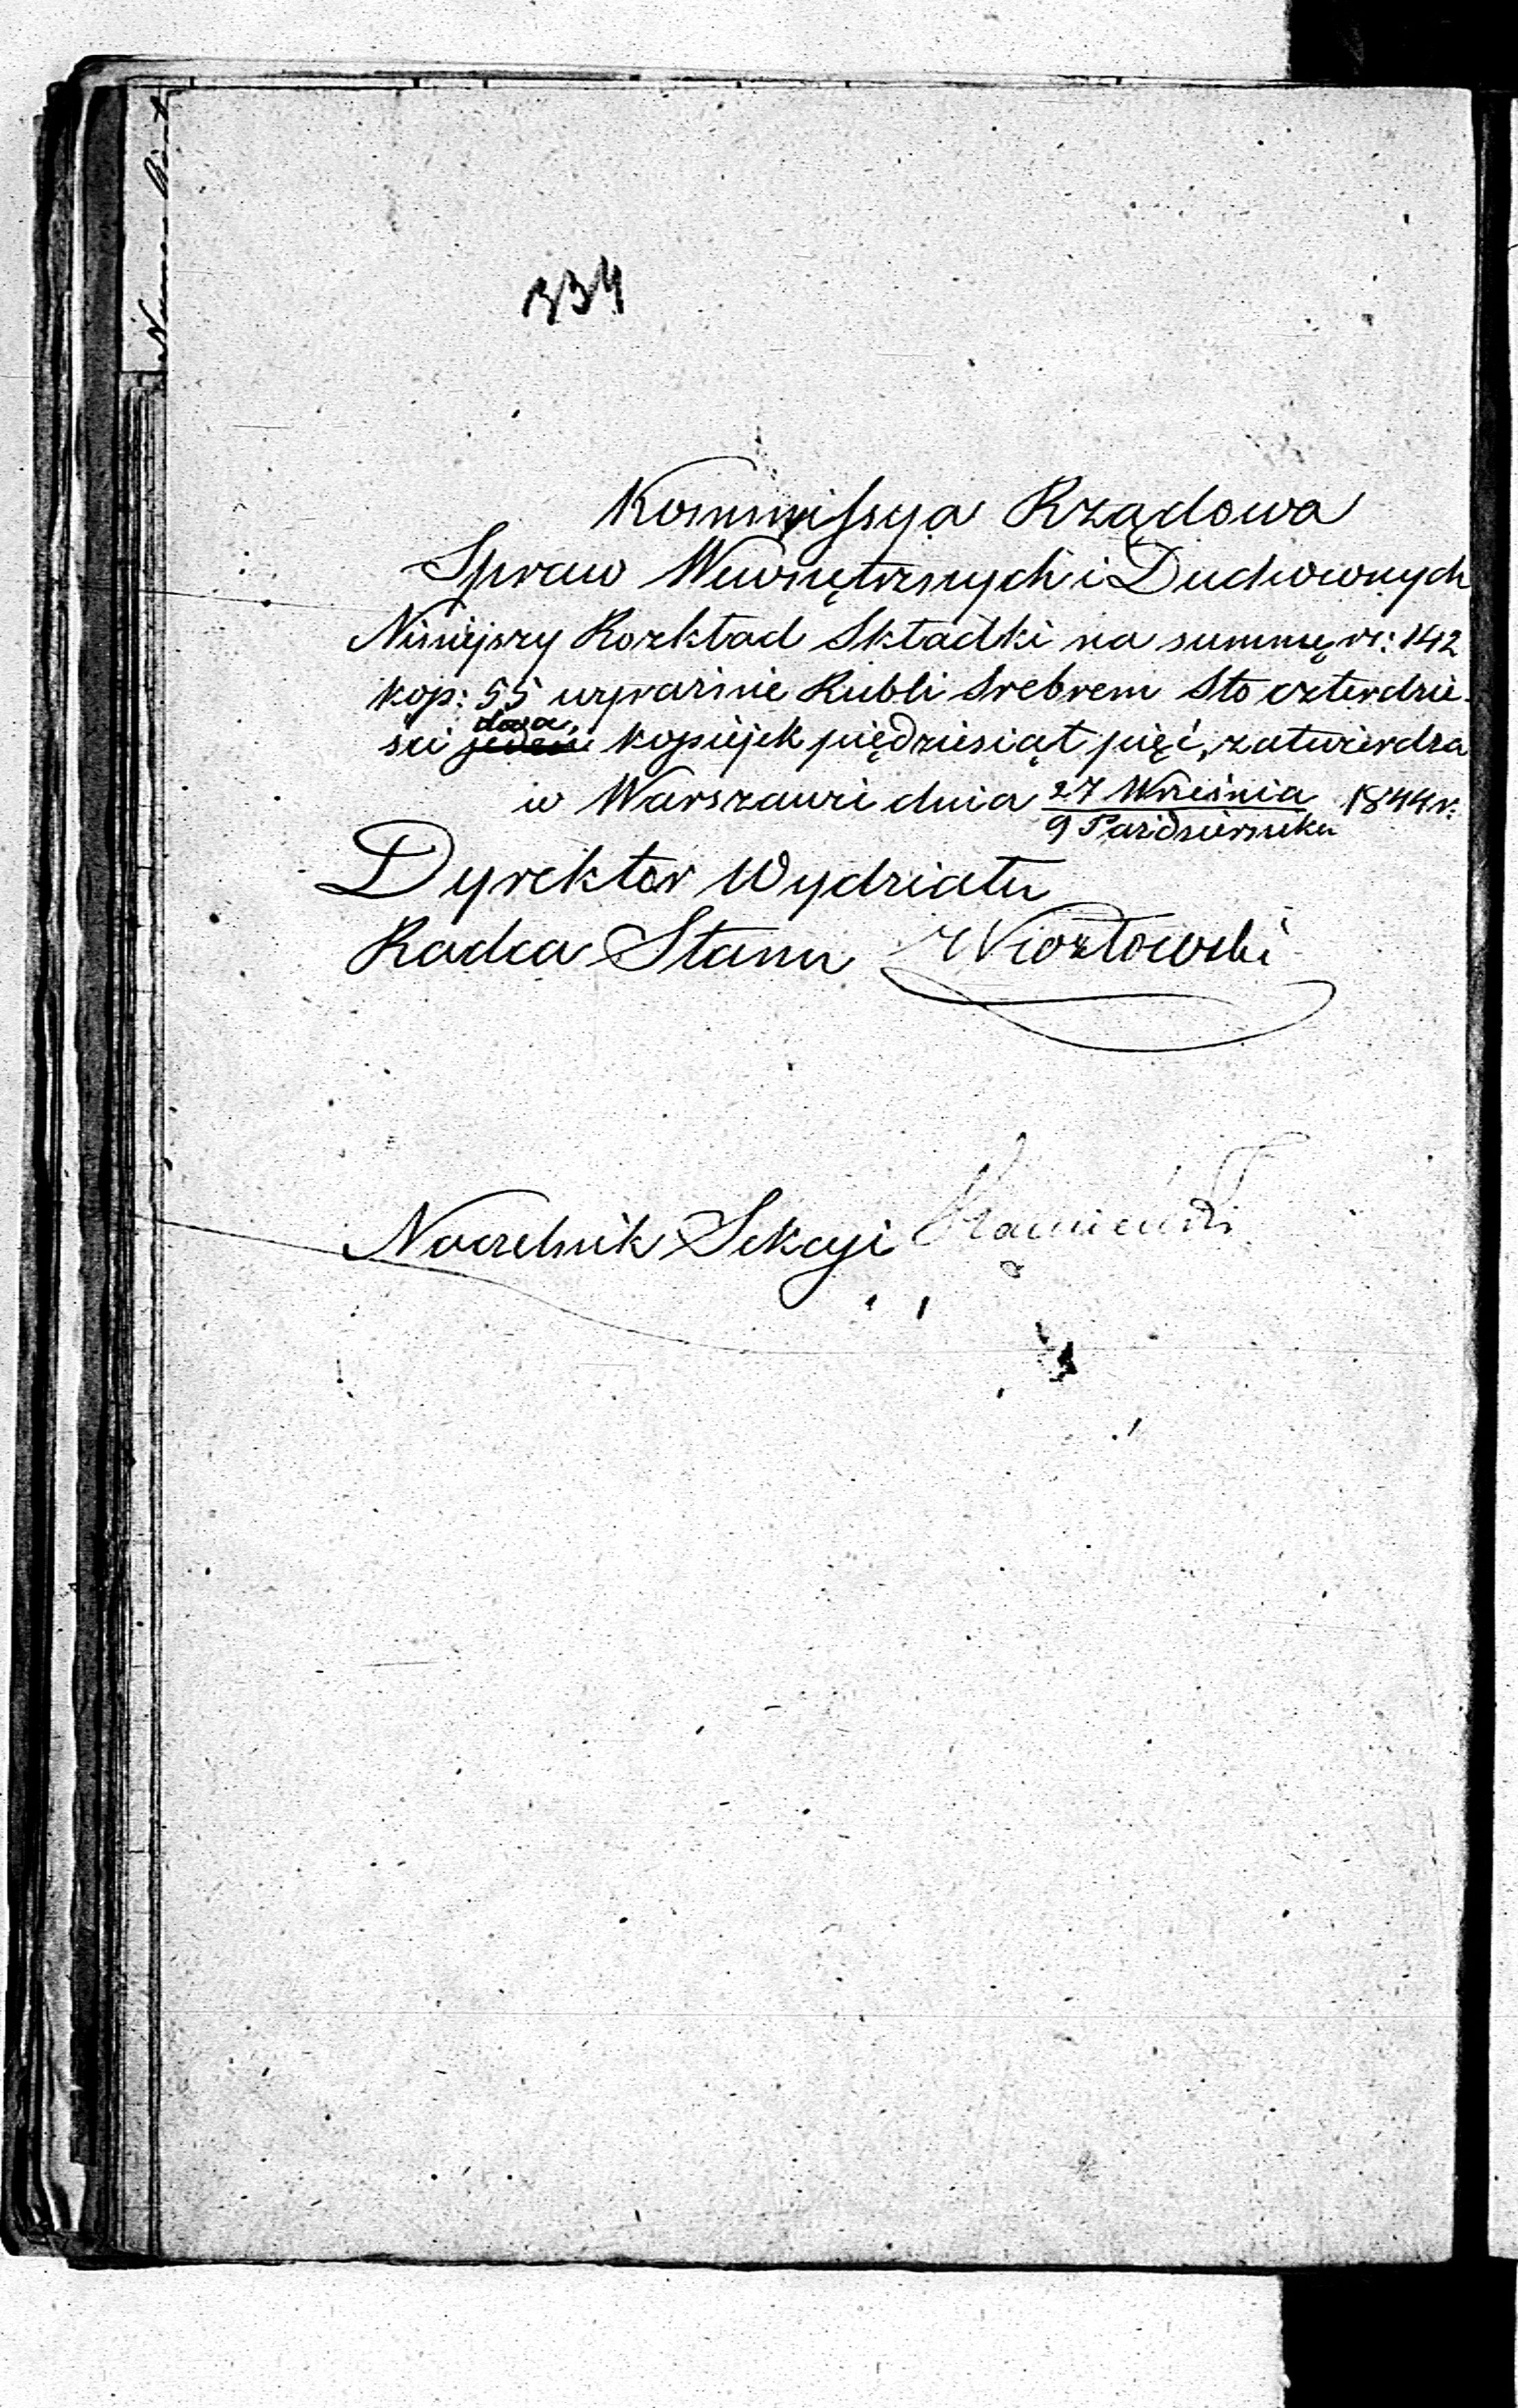 334
Kommissya Rządowa
Spraw Wewnętrznych i Duchownych
Niniejszy Rozkład Składki na summę rs: 142
kop: 55 wyraźnie Rubli Srebrem Sto czterdzie-
ści jeden dwa, kopiejek piędziesiąt pięć, zatwierdza
w Warszawie dnia 27 Września / 9 Października 1844 r.
Dyrektor Wydziału
Radca Stanu
Naczelnik Sekcyi